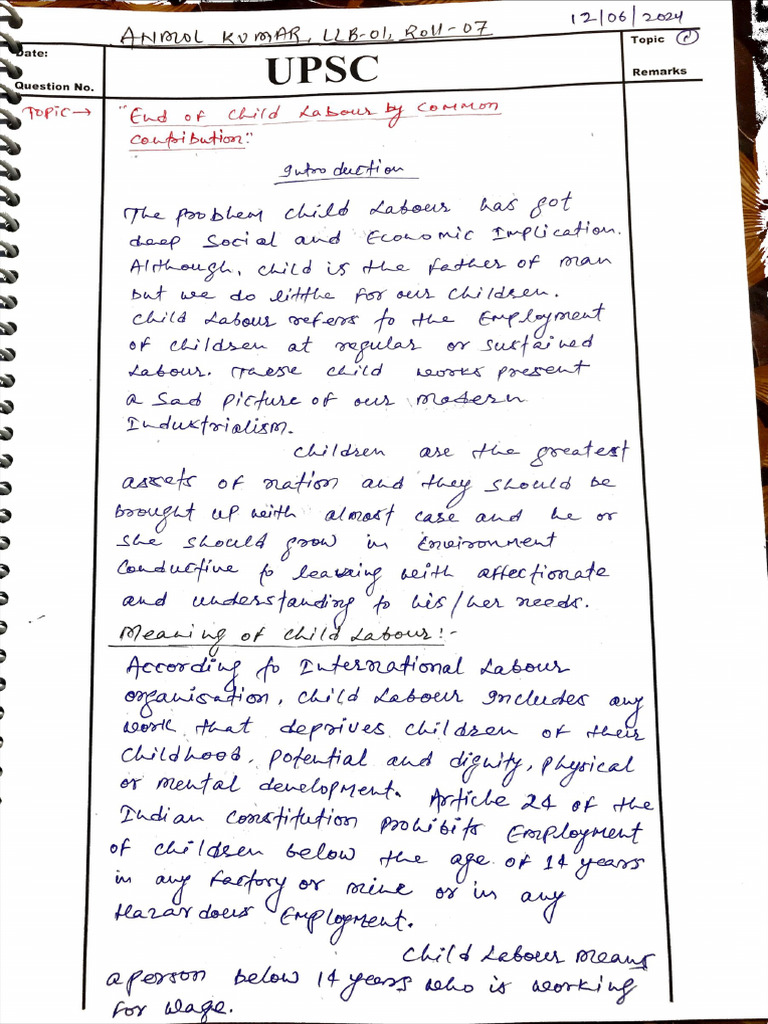 ANMOL KUMAR, LLB-01, Roll-07
12/06/2024
Date:
Question No.
UPSC
Topic 1
Remarks
Topic → "End of child Labour by common
contribution:"
Introduction
The problem child Labour has got
deep Social and Economic Implication.
Although, child is the father of man
but we do little for our children.
Child Labour refers to the Employment
of children at regular or sustained
Labour. These child works present
a sad picture of our modern
Industrialism.
Children are the greatest
assets of nation and they should be
brought up with almost case and he or
she should grow in Environment
Conductive to learning with affectionate
and understanding to his/her needs.
Meaning of child Labour:-
According to International Labour
organisation, child Labour includes any
work that deprives children of their
childhood, potential and dignity, physical
or mental development. Article 24 of the
Indian constitution prohibits Employment
of children below the age of 14 years
in any factory or mine or in any
Hazardous Employment.
Child Labour Means
a person below 14 years who is working
for wage.